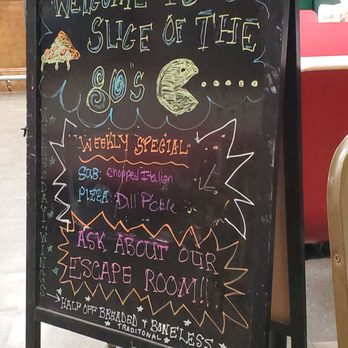 WELCOME TO
SLICE OF THE
80's
WEEKLY SPECIAL:
SUB: chopped Italian
PIZZA: Dill Pickle
ASK ABOUT OUR
ESCAPE ROOM!!
HALF OFF BREADED & BONELESS
TRADITONAL